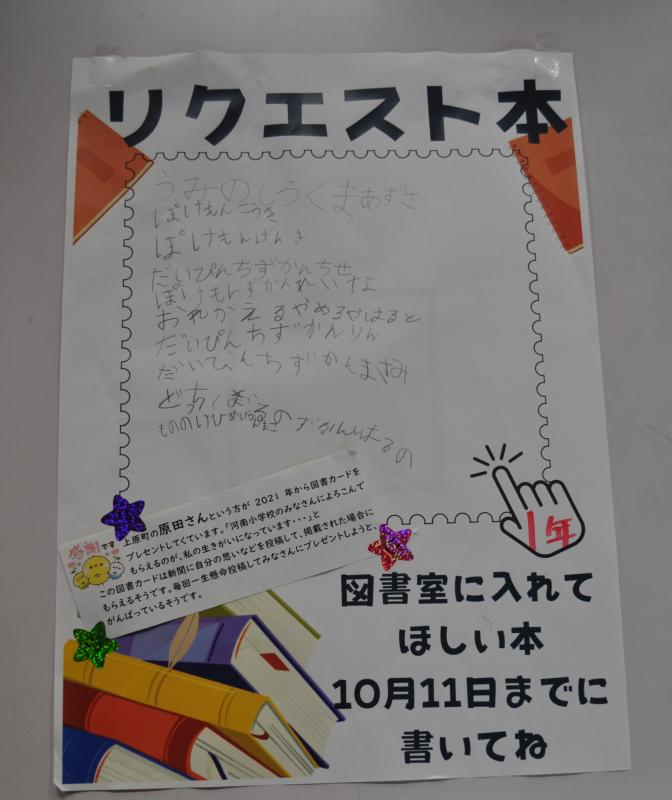 リクエスト本
うみのしろくまあずさ
ぽけもんこうき
ぽけもんげんき
だいぴんちずかんちせ
ぽけもんずかんれいな
おれかえるやめるやはると
だいぴんちずかんりん
だいぴんちずかんまなみ
ずかんはるの
1年
感謝です
上原町の原田さんという方が 2021 年から図書カードを
プレゼントしてくています。「河南小学校のみなさんによろこんで
もらえるのが、私の生きがいになっています・・・」と
この図書カードは新聞に自分の思いなどを投稿して、掲載された場合に
もらえるそうです。毎回一生懸命投稿してみなさんにプレゼントしようと、
がんばっているそうです。
図書室に入れて
ほしい本
10月11日までに
書いてね